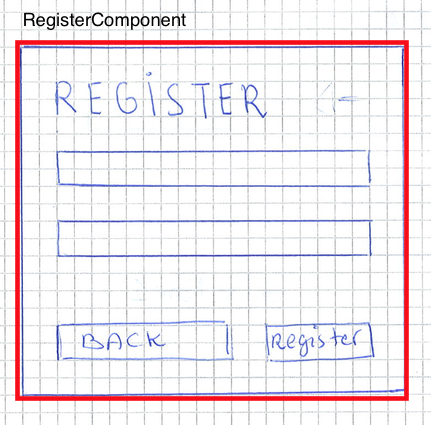 RegisterComponent
REGISTER
BACK Register